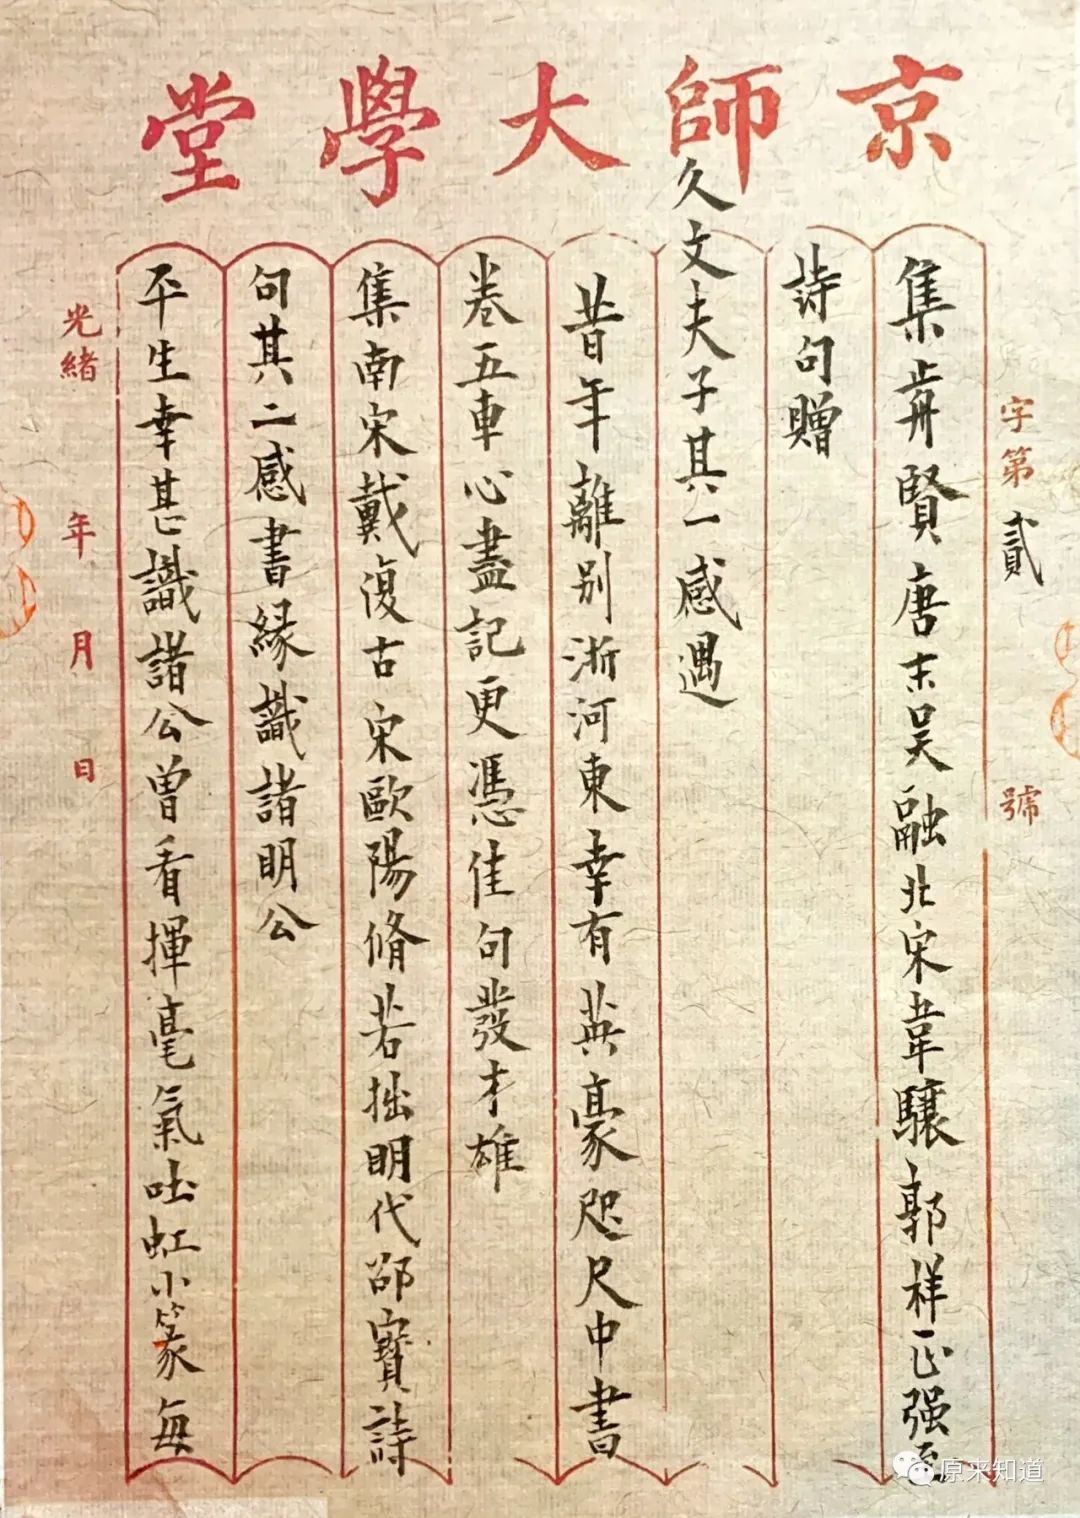 京師大學堂
字第貳號
集前賢唐末吴融北宋韋驤郭祥正强至
詩句贈
久文夫子其一感遇
昔年離别浙河東幸有英豪咫尺中書
卷五車心盡記更憑佳句發才雄
集南宋戴復古宋歐陽脩若拙明代邵寶詩
句其二感書緣識諸明公
平生幸甚識諸公曾看揮毫氣吐虹小篆每
光緒 年 月 日
原来知道